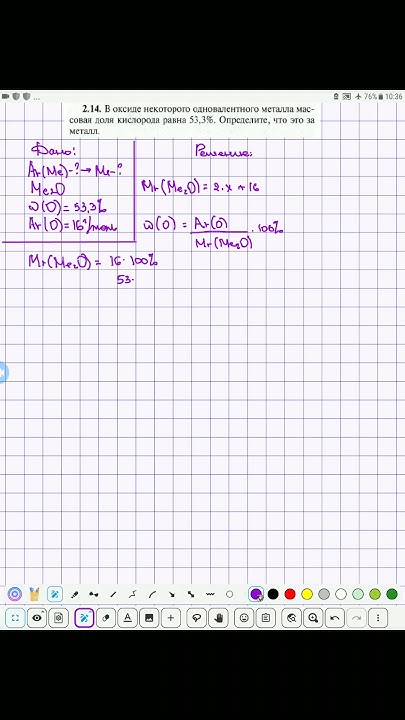 76% 10:36
2.14. В оксиде некоторого одновалентного металла мас-
совая доля кислорода равна 53,3%. Определите, что это за
металл.
Дано:
Решение:
Ar(Me)-?→ Me-?
Me₂O
ω(O)=53,3%
Ar(O)=16 г/моль
Mr(Me₂O)=2·x+16
ω(O) = Ar(O)/Mr(Me₂O) · 100%
Mr(Me₂O) = 16·100%
53.